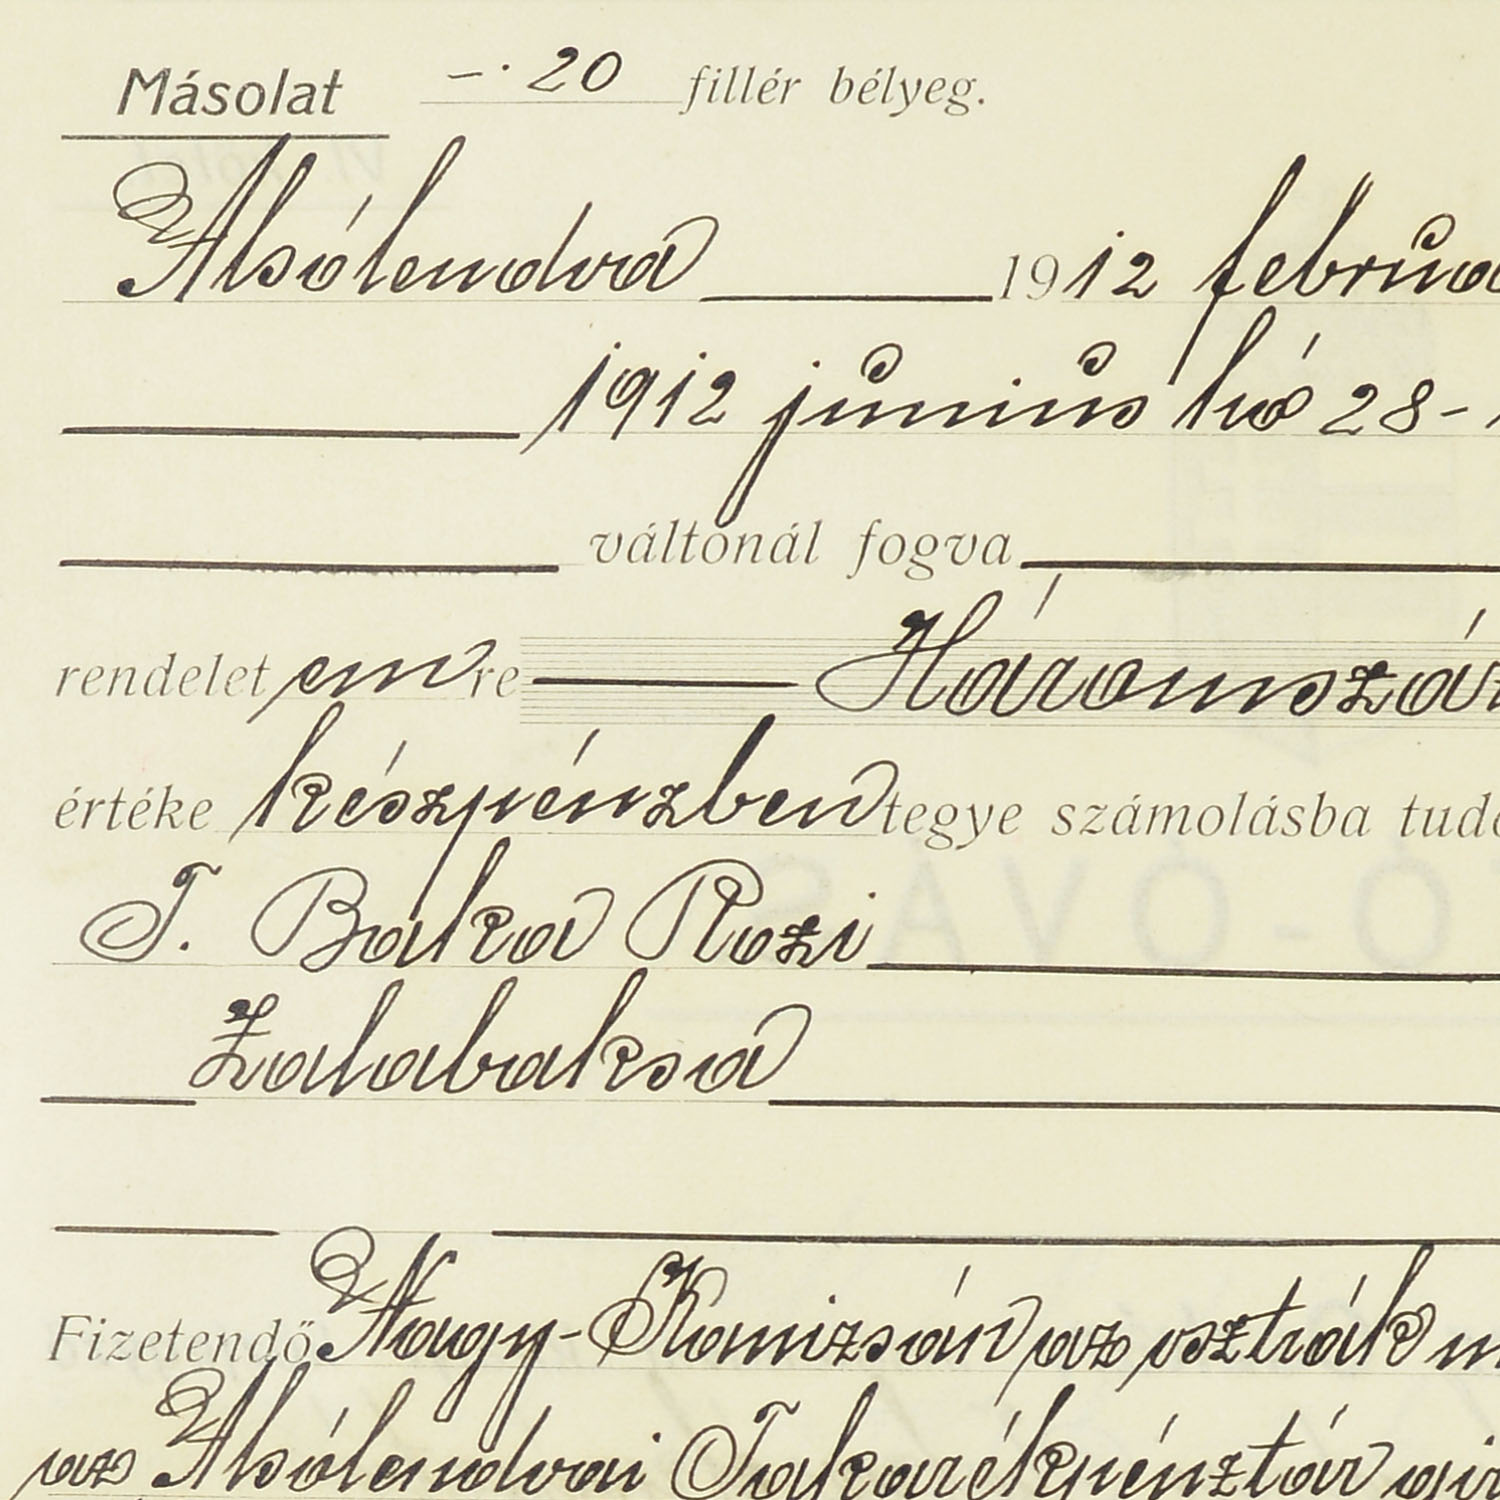 Másolat —· 20 fillér bélyeg.
Alsólendva 1912 februá
1912 június hó 28-
váltónál fogva
rendelet em re Háromszáz
értéke készpénzben tegye számolásba tudó
T. Baka Rozi
Zalabaksa
Fizetendő Nagy-Kanizsán az osztrák m
az Alsólendvai Takarékpénztár